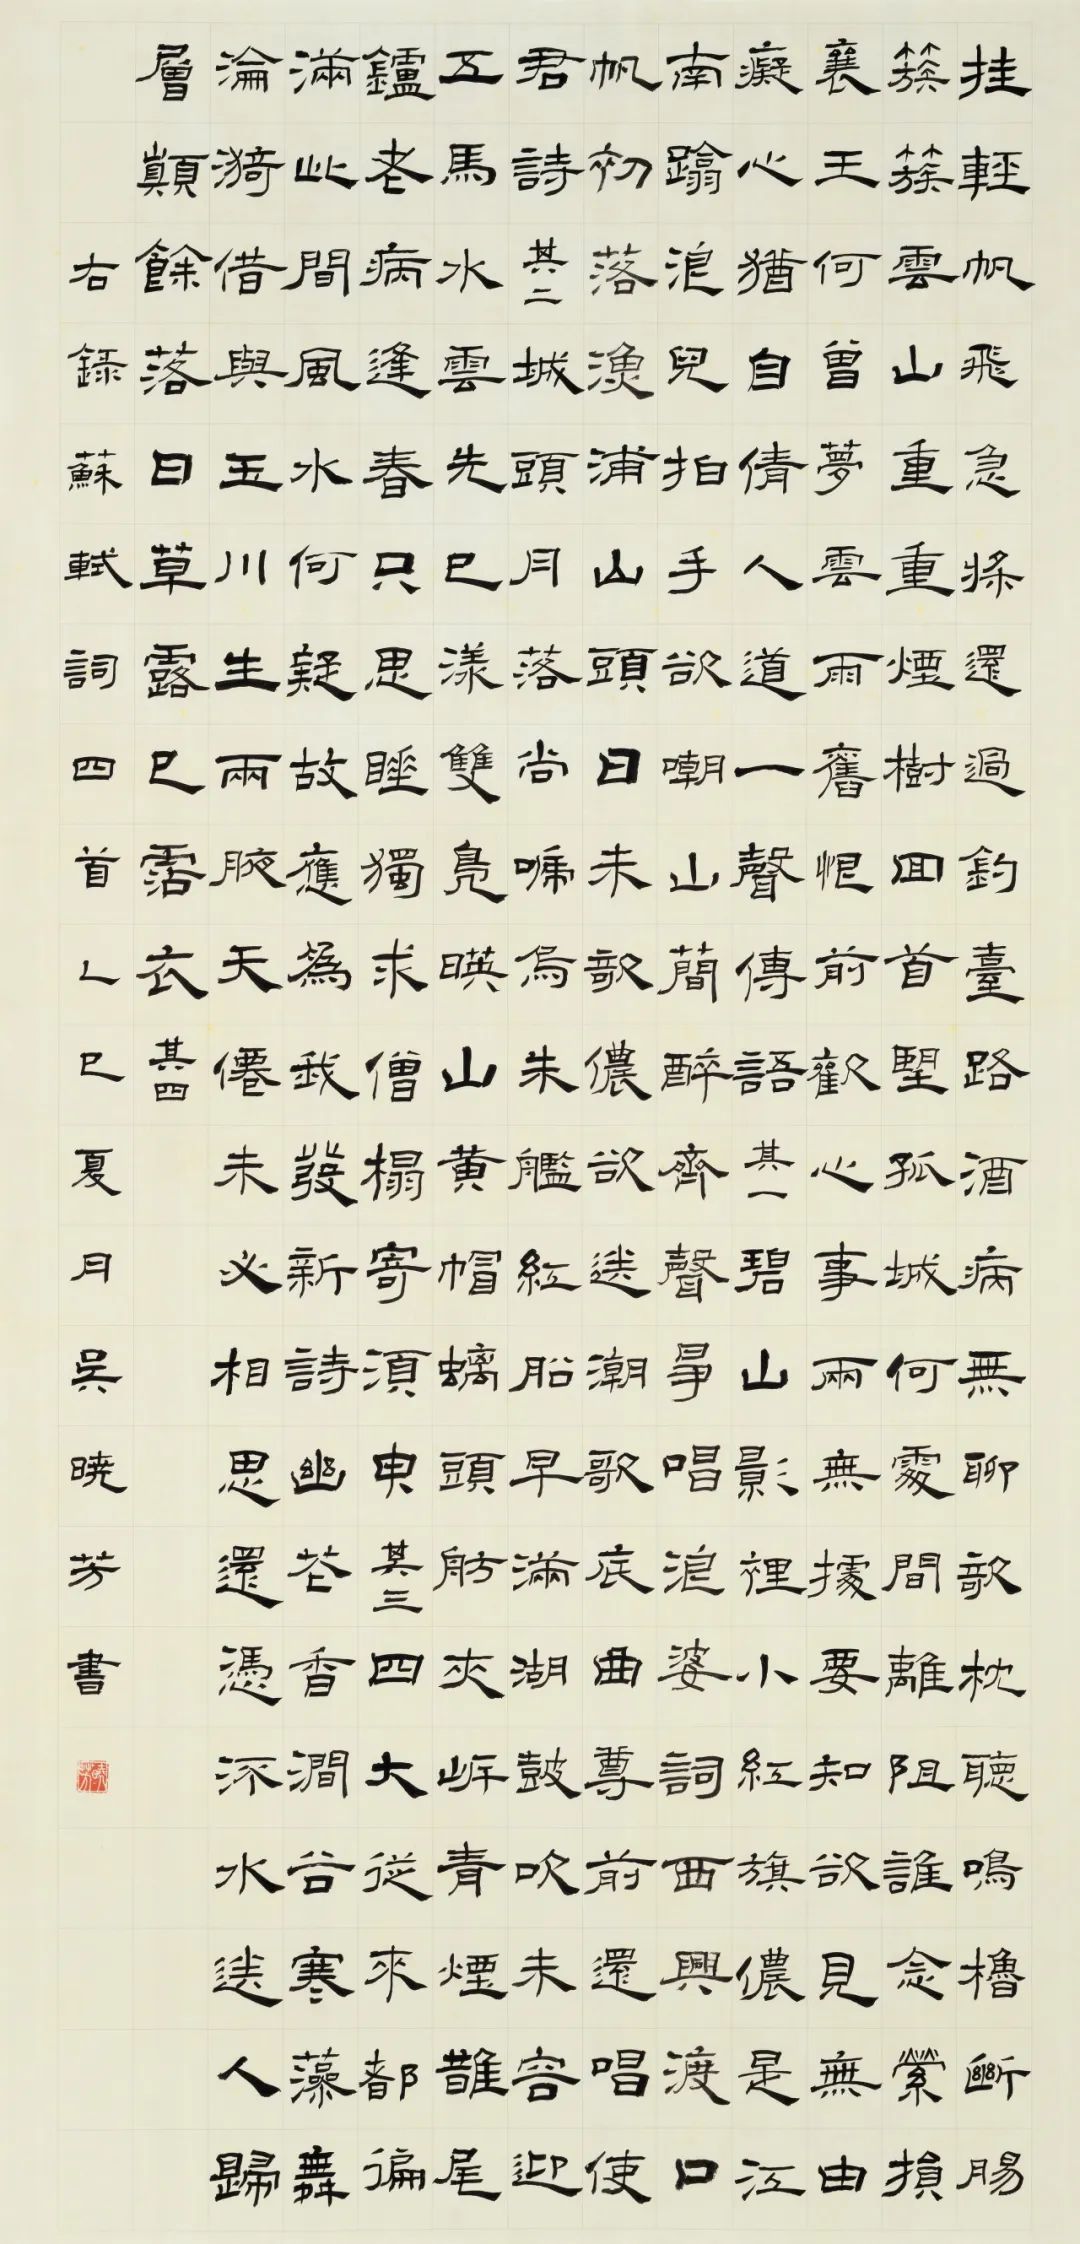 挂輕帆飛急槳還過釣臺路酒病無聊欹枕聽鳴櫓斷腸
簇簇雲山重重煙樹回首望孤城何處間離阻誰念縈損
襄王何曾夢雲雨舊恨前歡心事兩無據要知欲見無由
癡心猶自倩人道一聲傳語其一碧山影裡小紅旗儂是江
南蹋浪兒拍手欲嘲山簡醉齊聲爭唱浪婆詞西興渡口
帆初落漁浦山頭日未欹儂欲送潮歌底曲尊前還唱使
君詩其二城頭月落尚啼烏朱艦紅船早滿湖鼓吹未容迎
五馬水雲先已漾雙鳧暎山黃帽螭頭舫夾岸青煙鵲尾
鑪老病逢春只思睡獨求僧榻寄須臾其三四大從來都徧
滿此間風水何疑故應為我發新詩幽花香澗谷寒藻舞
淪漪借與玉川生兩腋天僊未必相思還憑流水送人歸
層巔餘落日草露已霑衣其四
右錄蘇軾詞四首乙巳夏月吳曉芳書
曉芳